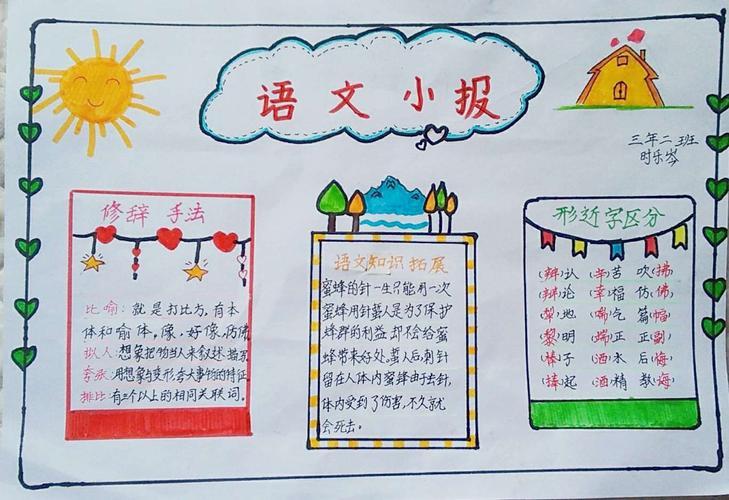 语文小报
三年二班
时乐岑
修辞 手法
比喻：就是打比方，有本
体和喻体，像，好像，仿佛
拟人：想象把物当人来叙述描写
夸张：用想象与变形夸大事物的特征
排比：有三个以上的相同关联词。
语文知识拓展
蜜蜂的针一生只能用一次
蜜蜂用针蜇人是为了保护
蜂群的利益，却不会给蜜
蜂带来好处，蜇人后，刺针
留在人体内，蜜蜂由于去针，
体内受到了伤害，不久就
会死去。
形近字区分
(辩)认 (辛)苦 吹(拂)
(辩)论 (幸)福 仿(佛)
(犁)地 (喘)气 篇(幅)
(黎)明 (端)正 正(副)
(棒)子 (洒)水 后(悔)
(捧)起 (酒)精 教(诲)